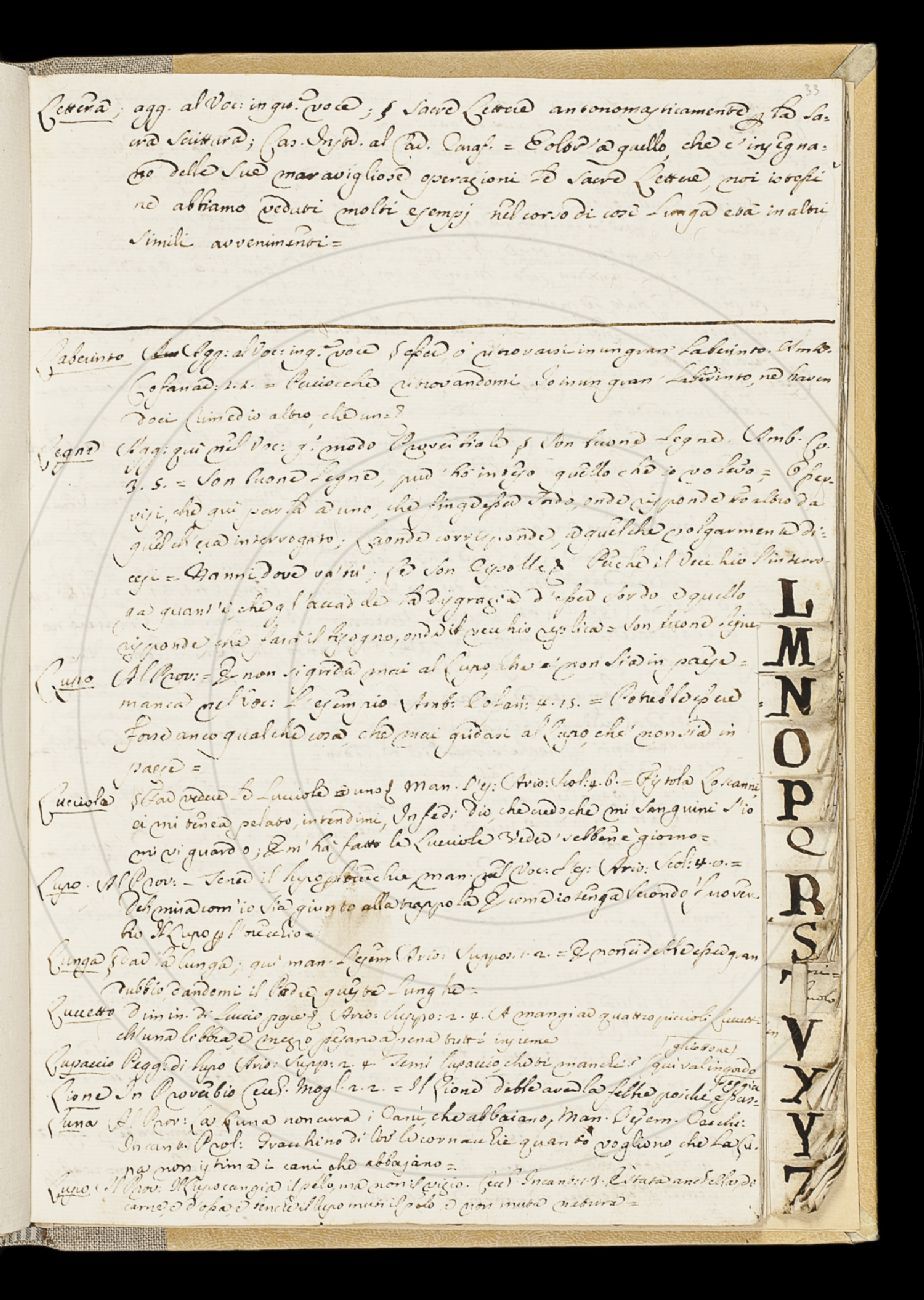 33
Lettera; agg. al Voc: in qu.ª voce; § Sacre Lettere antonomasticamente la Sa-
cra Scrittura; Cas. al Car. = E oltr'a quello che c'insegna-
no delle sue maravigliose operazioni le Sacre Lettere, noi istessi
ne abbiamo veduti molti esempj nel corso di così lunga età in altri
simili avvenimenti =
Laberinto Agg: al Voc: in q.ª voce § esser o ritrovarsi in un gran Laberinto. Amb.
Cofanar: = Perciocche ritrovandomi Io in un gran Laberinto, ne haven
doci rimedio altro, che un
Legne Agg: qui nel Voc: q.º modo Proverbiale § Son buone legne. Amb. Co.
3. 5. = Son buone legne, può hò inteso quello che io volevo =
che qui parla a uno, che finge esser sordo, onde risponde tutt'altro da
quel ch'era interrogato; Laonde corrisponde, a quel che volgarmente di-
cesi = Nanni, dove va'tu; Perche il Vecchio l'interro-
ga quant'è, che gl'accadde la disgrazia d'esser sordo e quello
risponde farà il bisogno, onde il vecchio replica = Son buone legne
Lupo Al Prov: = E non si grida mai al Lupo, che e' non sia in paese =
manca nel Voc: l'esempio Amb: Cofan: 4. 15. = Potrebb'essere
forse anco qualche cosa, che mai gridasi al Lupo, che non sia in
paese =
Lucciola § Far vedere le lucciole a uno Man. l'es: Ario: Scol: 4. 6. =
ei mi tenea pelato, intendimi, In fe di Dio, che credo che mi sanguini S'io
mi vi guardo; E m'ha fatto le Lucciole veder sebben è giorno =
Lupo. Al Prov: - Tener il lupo orecchie man. al Voc: l'es: Ario: Scol: 4. =
Deh mira com'io sia giunto alla trappola E come io tenga secondo
bio Il Lupo p l'orecchio =
Lunga § Dar la lunga; qui man. l'esem Ario: Suppos: 1. 2. = E non ci debbe esser gran
dubbio, dandomi il Padre queste lunghe =
Luccetto Dimin: di Luccio pesce Ario: Suppo: 2. 4. A mangiar quattro piccioli luccett-
ch'una libbra, e mezzo pesavano a pena tutti insieme
Lupaccio Pegg: di lupo Ario: Supp: 2. 4. Temi lupaccio che ti manchi? § qui val ingordo
Lione In Proverbio Cecch. Mogl. 2. 2. = Il Lione debbe aver la febre poiche
Luna Al Prov: La Luna non cura i Cani, che abbaiano, man. l'esem. Cecchi.
Incant. Prol: Gracchino di lor le cornacchie quanto vogliono, che la Lu-
na non istima i cani che abbajano =
Lupo: Al Prov. Il lupo cangia il pelo, ma non il vizio. Cec: Incant: 1. 3.
carne, e d'ossa, e benche il lupo muti il pelo e non muta natura =
L
M
N
O
P
Q
R
S
T
V
X
Y
Z